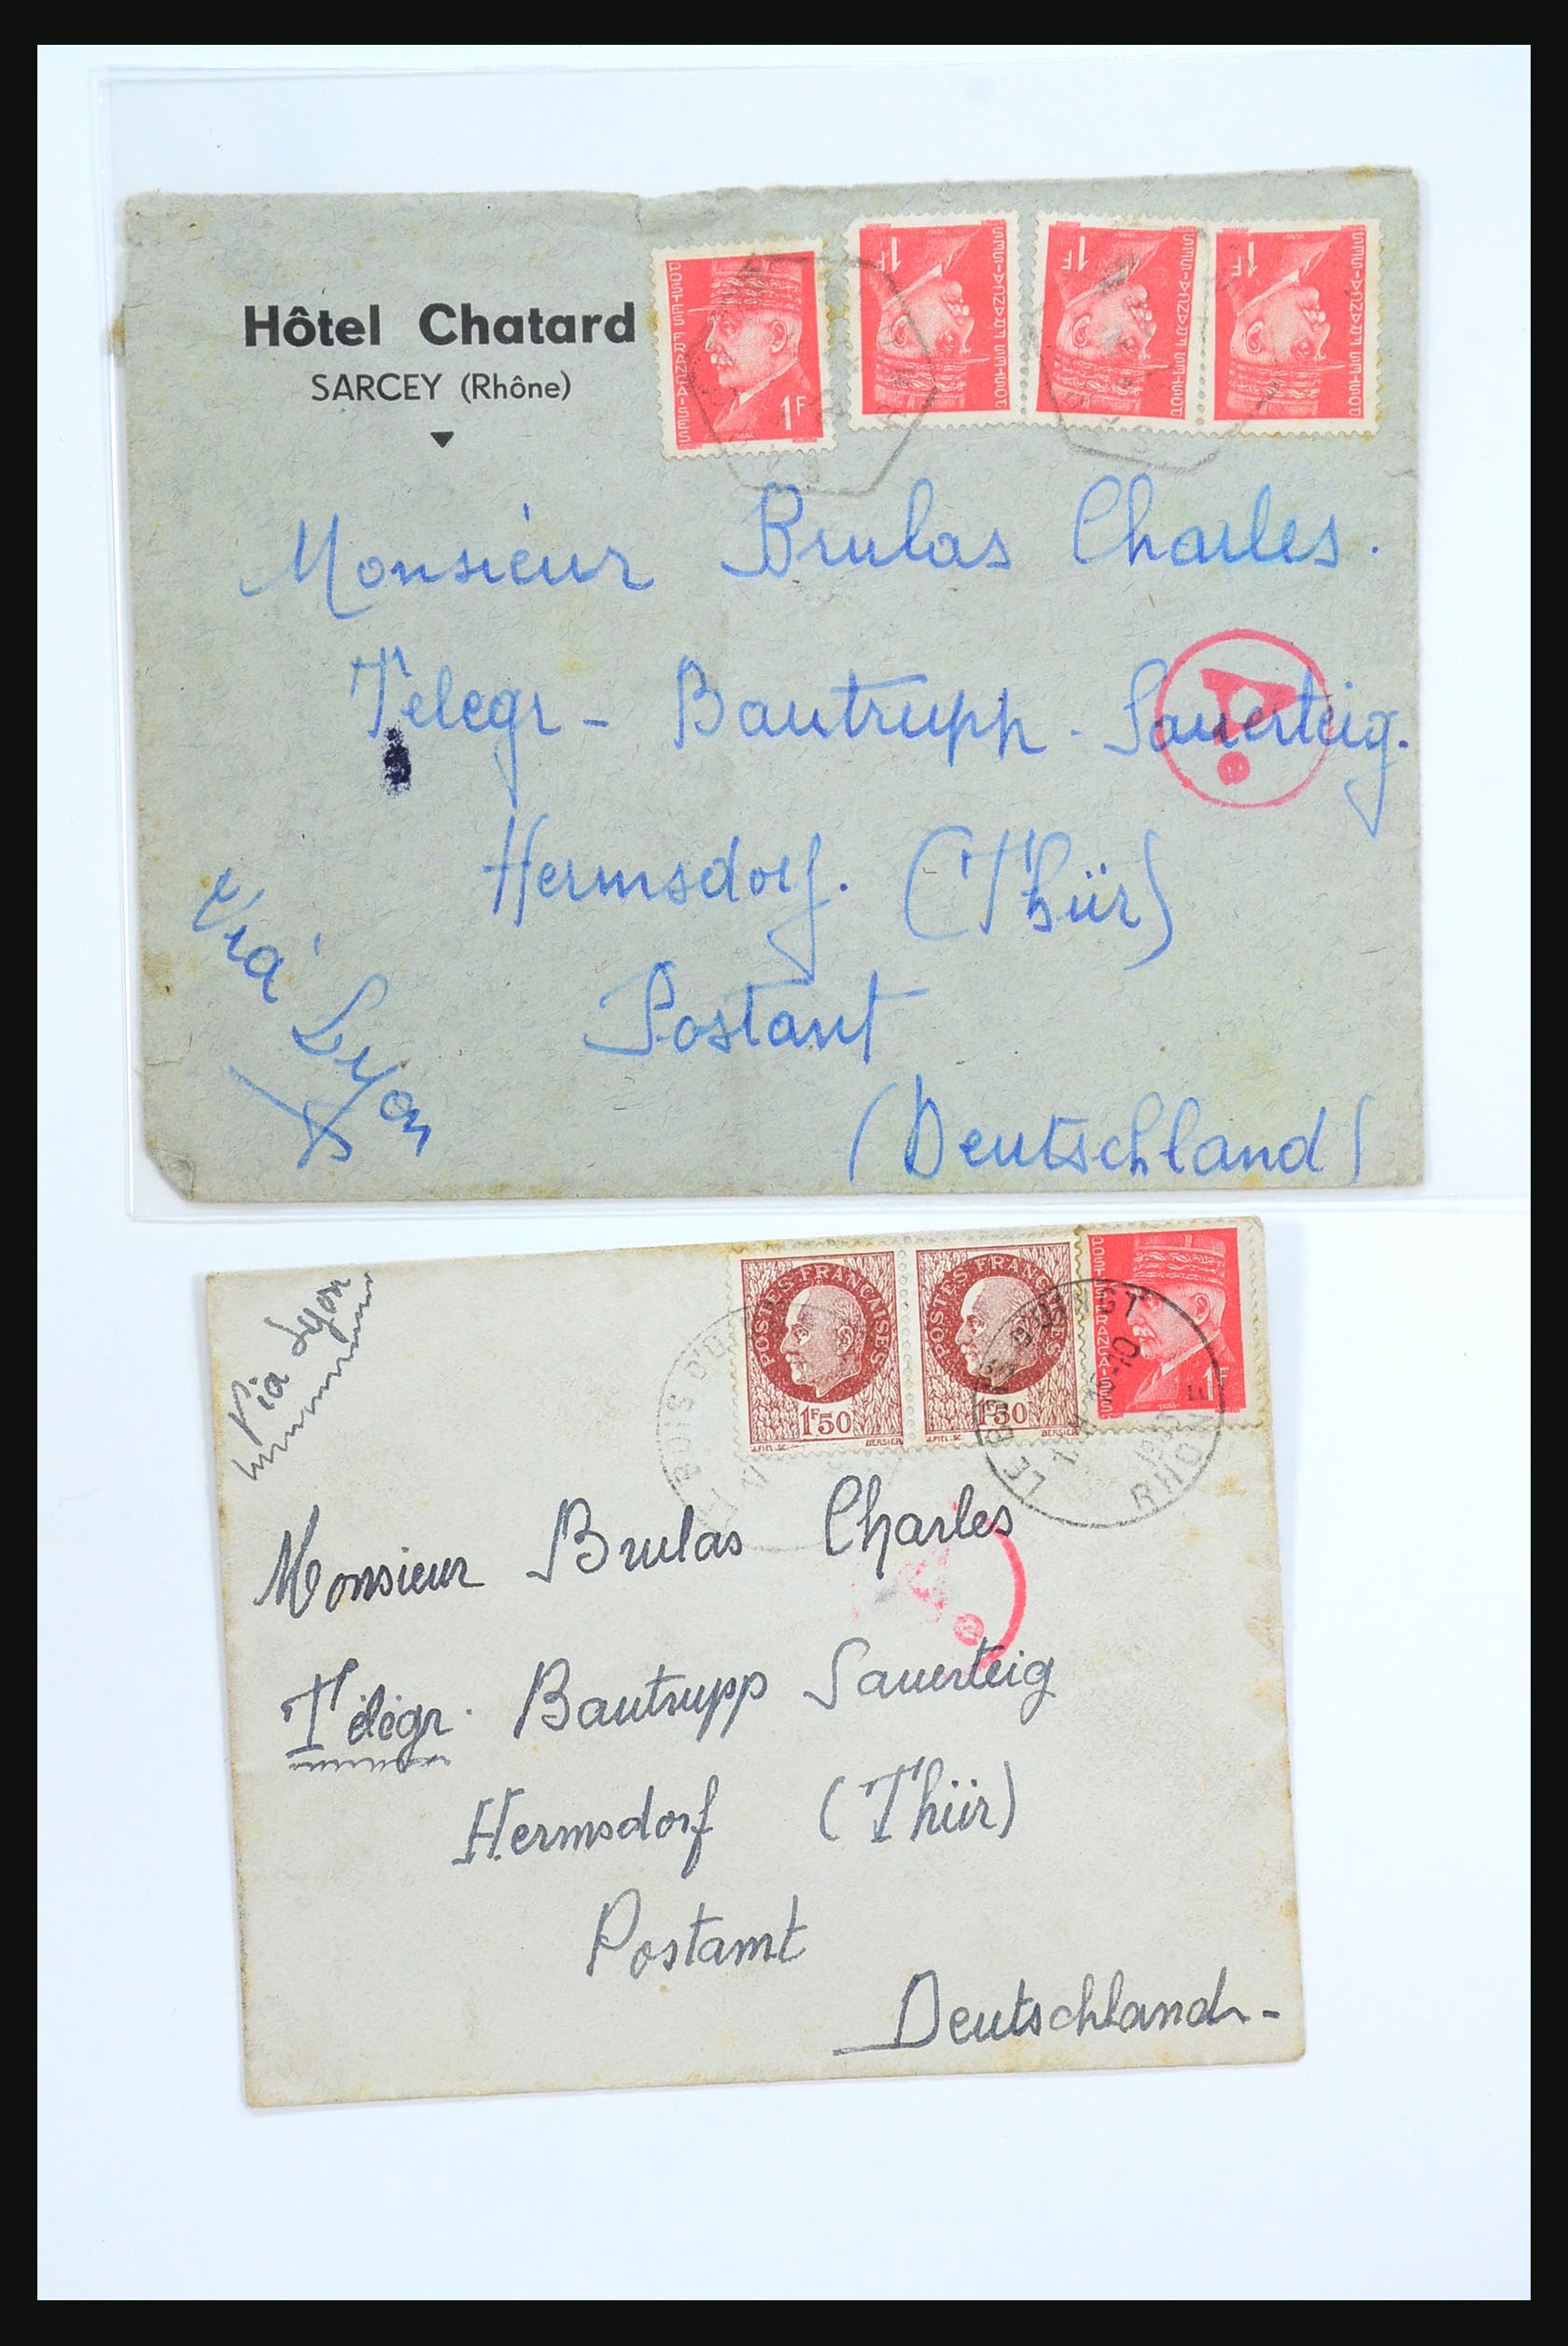 Hôtel Chatard
SARCEY (Rhône)
POSTES FRANÇAISES
1F
POSTES FRANÇAISES
1F
POSTES FRANÇAISES
1F
POSTES FRANÇAISES
1F
Monsieur Brulas Charles.
Telegr - Bautrupp - Sauerteig.
A
e
Hermsdorf. (Thür)
Via Lyon
Postant
(Deutschland)
Via Lyon
POSTES FRANÇAISES
1F50
BERSIER
POSTES FRANÇAISES
1F50
BERSIER
POSTES FRANÇAISES
1F
LE BOIS D'OINGT
RHONE
Monsieur Brulas Charles
A
e
Télégr. Bautrupp Sauerteig
Hermsdorf (Thür)
Postamt
Deutschland-